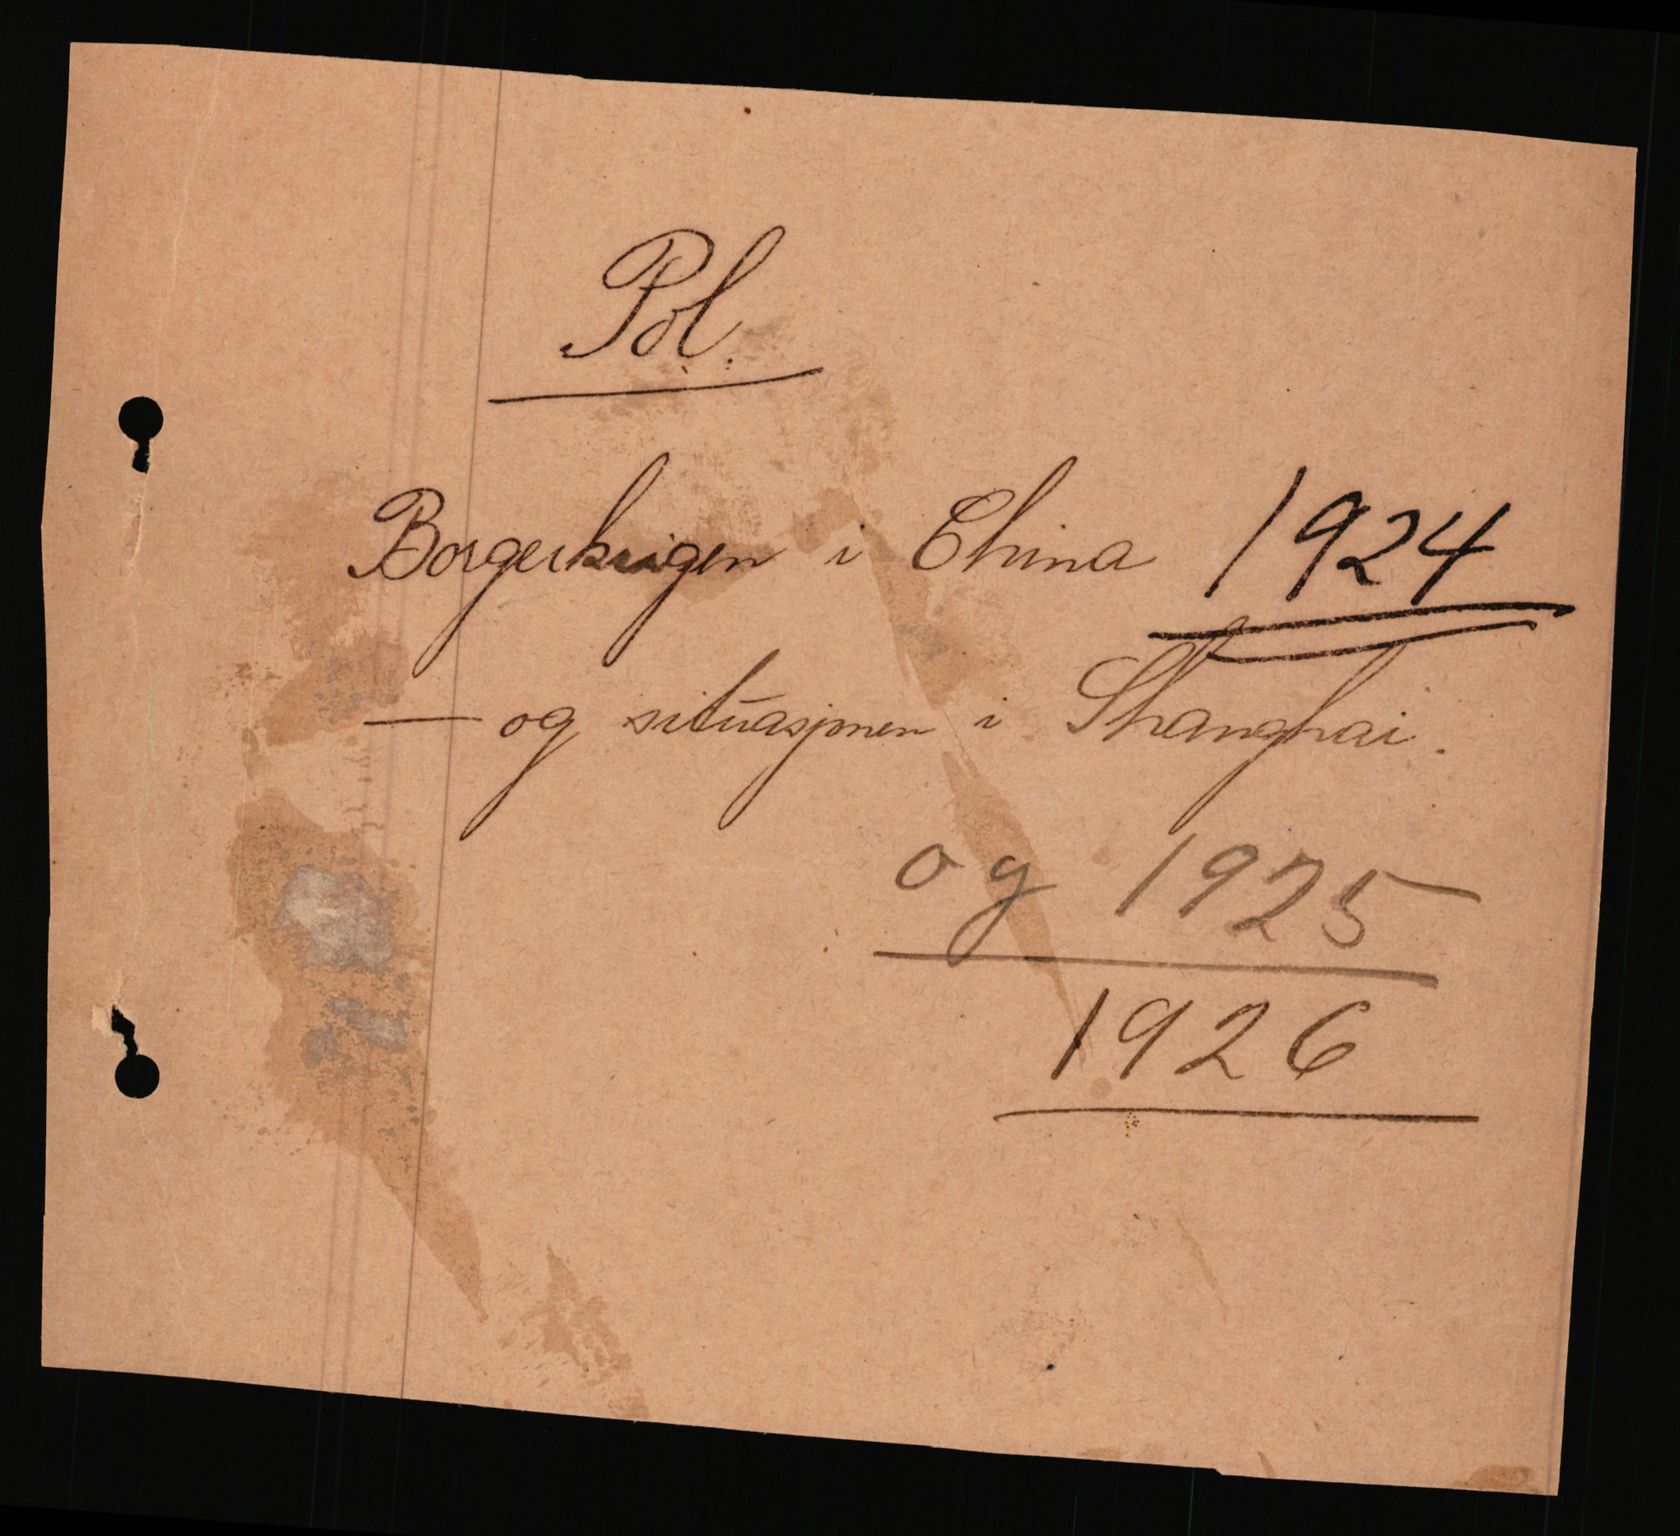 Pol.
Borgerkrigen i China 1924
— og situasjonen i Shanghai.
og 1925
1926